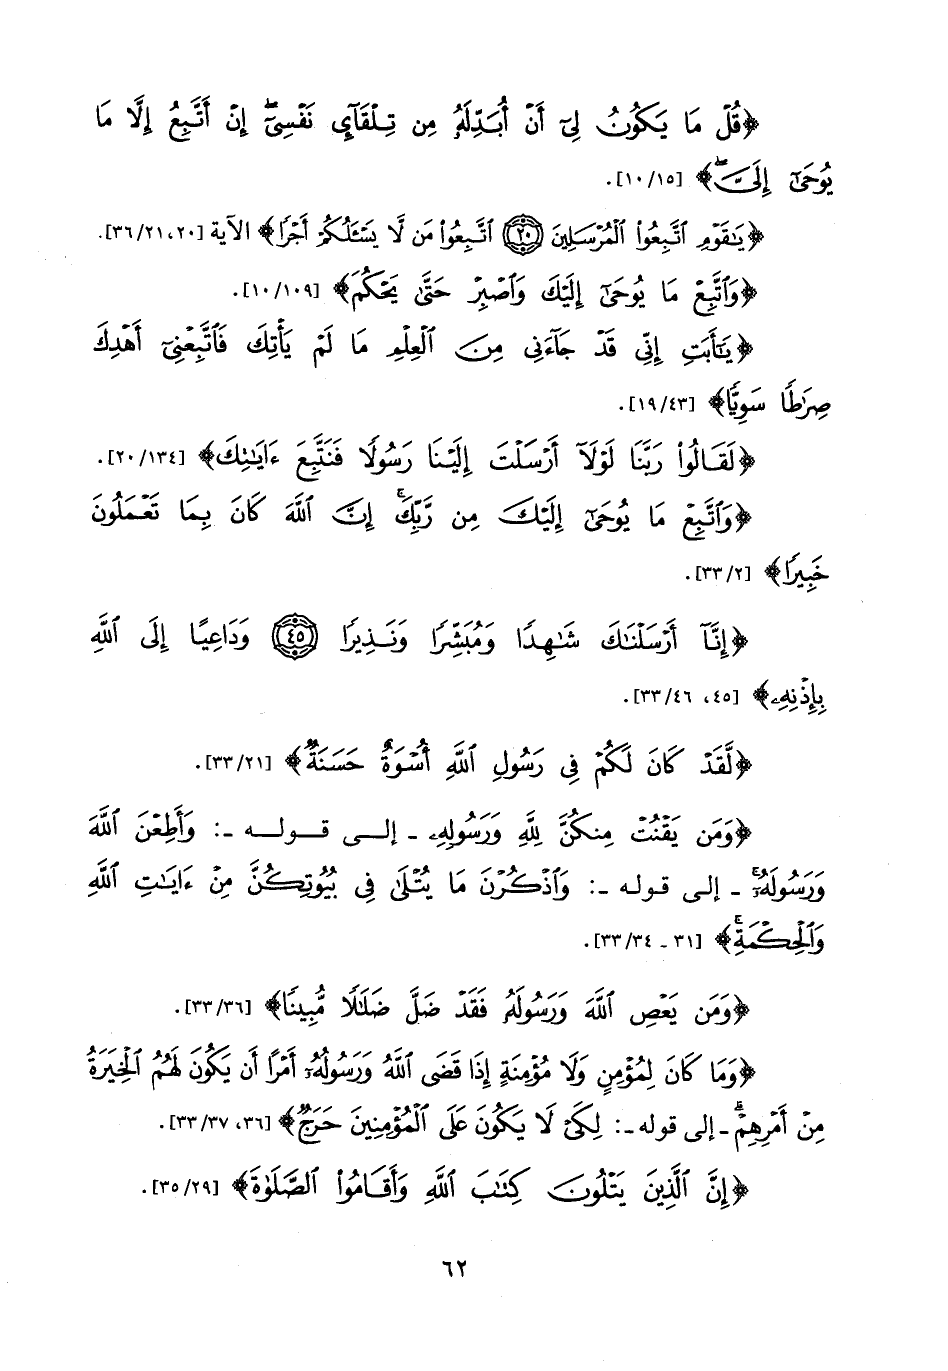 ﴿قُلْ مَا يَكُونُ لِىٓ أَنْ أُبَدِّلَهُۥ مِن تِلْقَآئِ نَفْسِىٓ ۖ إِنْ أَتَّبِعُ إِلَّا مَا
يُوحَىٰٓ إِلَىَّ ۖ﴾ [١٠/١٥].
﴿يَـٰقَوْمِ ٱتَّبِعُوا۟ ٱلْمُرْسَلِينَ ﴿٢٠﴾ ٱتَّبِعُوا۟ مَن لَّا يَسْـَٔلُكُمْ أَجْرًا﴾ الآية [٣٦/٢١،٢٠].
﴿وَٱتَّبِعْ مَا يُوحَىٰٓ إِلَيْكَ وَٱصْبِرْ حَتَّىٰ يَحْكُمَ﴾ [١٠/١٠٩].
﴿يَـٰٓأَبَتِ إِنِّى قَدْ جَآءَنِى مِنَ ٱلْعِلْمِ مَا لَمْ يَأْتِكَ فَٱتَّبِعْنِىٓ أَهْدِكَ
صِرَٰطًا سَوِيًّا﴾ [١٩/٤٣].
﴿لَقَالُوا۟ رَبَّنَا لَوْلَآ أَرْسَلْتَ إِلَيْنَا رَسُولًا فَنَتَّبِعَ ءَايَـٰتِكَ﴾ [٢٠/١٣٤].
﴿وَٱتَّبِعْ مَا يُوحَىٰٓ إِلَيْكَ مِن رَّبِّكَ ۚ إِنَّ ٱللَّهَ كَانَ بِمَا تَعْمَلُونَ
خَبِيرًا﴾ [٣٣/٢].
﴿إِنَّآ أَرْسَلْنَـٰكَ شَـٰهِدًا وَمُبَشِّرًا وَنَذِيرًا ﴿٤٥﴾ وَدَاعِيًا إِلَى ٱللَّهِ
بِإِذْنِهِۦ﴾ [٤٥، ٣٣/٤٦].
﴿لَّقَدْ كَانَ لَكُمْ فِى رَسُولِ ٱللَّهِ أُسْوَةٌ حَسَنَةٌ﴾ [٣٣/٢١].
﴿وَمَن يَقْنُتْ مِنكُنَّ لِلَّهِ وَرَسُولِهِۦ ـ إلـى قـولـه ـ: وَأَطِعْنَ ٱللَّهَ
وَرَسُولَهُۥٓ ۚ ـ إلى قوله ـ: وَٱذْكُرْنَ مَا يُتْلَىٰ فِى بُيُوتِكُنَّ مِنْ ءَايَـٰتِ ٱللَّهِ
وَٱلْحِكْمَةِ ۚ﴾ [٣١ ـ ٣٣/٣٤].
﴿وَمَن يَعْصِ ٱللَّهَ وَرَسُولَهُۥ فَقَدْ ضَلَّ ضَلَـٰلًا مُّبِينًا﴾ [٣٣/٣٦].
﴿وَمَا كَانَ لِمُؤْمِنٍ وَلَا مُؤْمِنَةٍ إِذَا قَضَى ٱللَّهُ وَرَسُولُهُۥٓ أَمْرًا أَن يَكُونَ لَهُمُ ٱلْخِيَرَةُ
مِنْ أَمْرِهِمْ ۗ ـ إلى قوله ـ: لِكَىْ لَا يَكُونَ عَلَى ٱلْمُؤْمِنِينَ حَرَجٌ﴾ [٣٦، ٣٣/٣٧].
﴿إِنَّ ٱلَّذِينَ يَتْلُونَ كِتَـٰبَ ٱللَّهِ وَأَقَامُوا۟ ٱلصَّلَوٰةَ﴾ [٣٥/٢٩].
٦٢